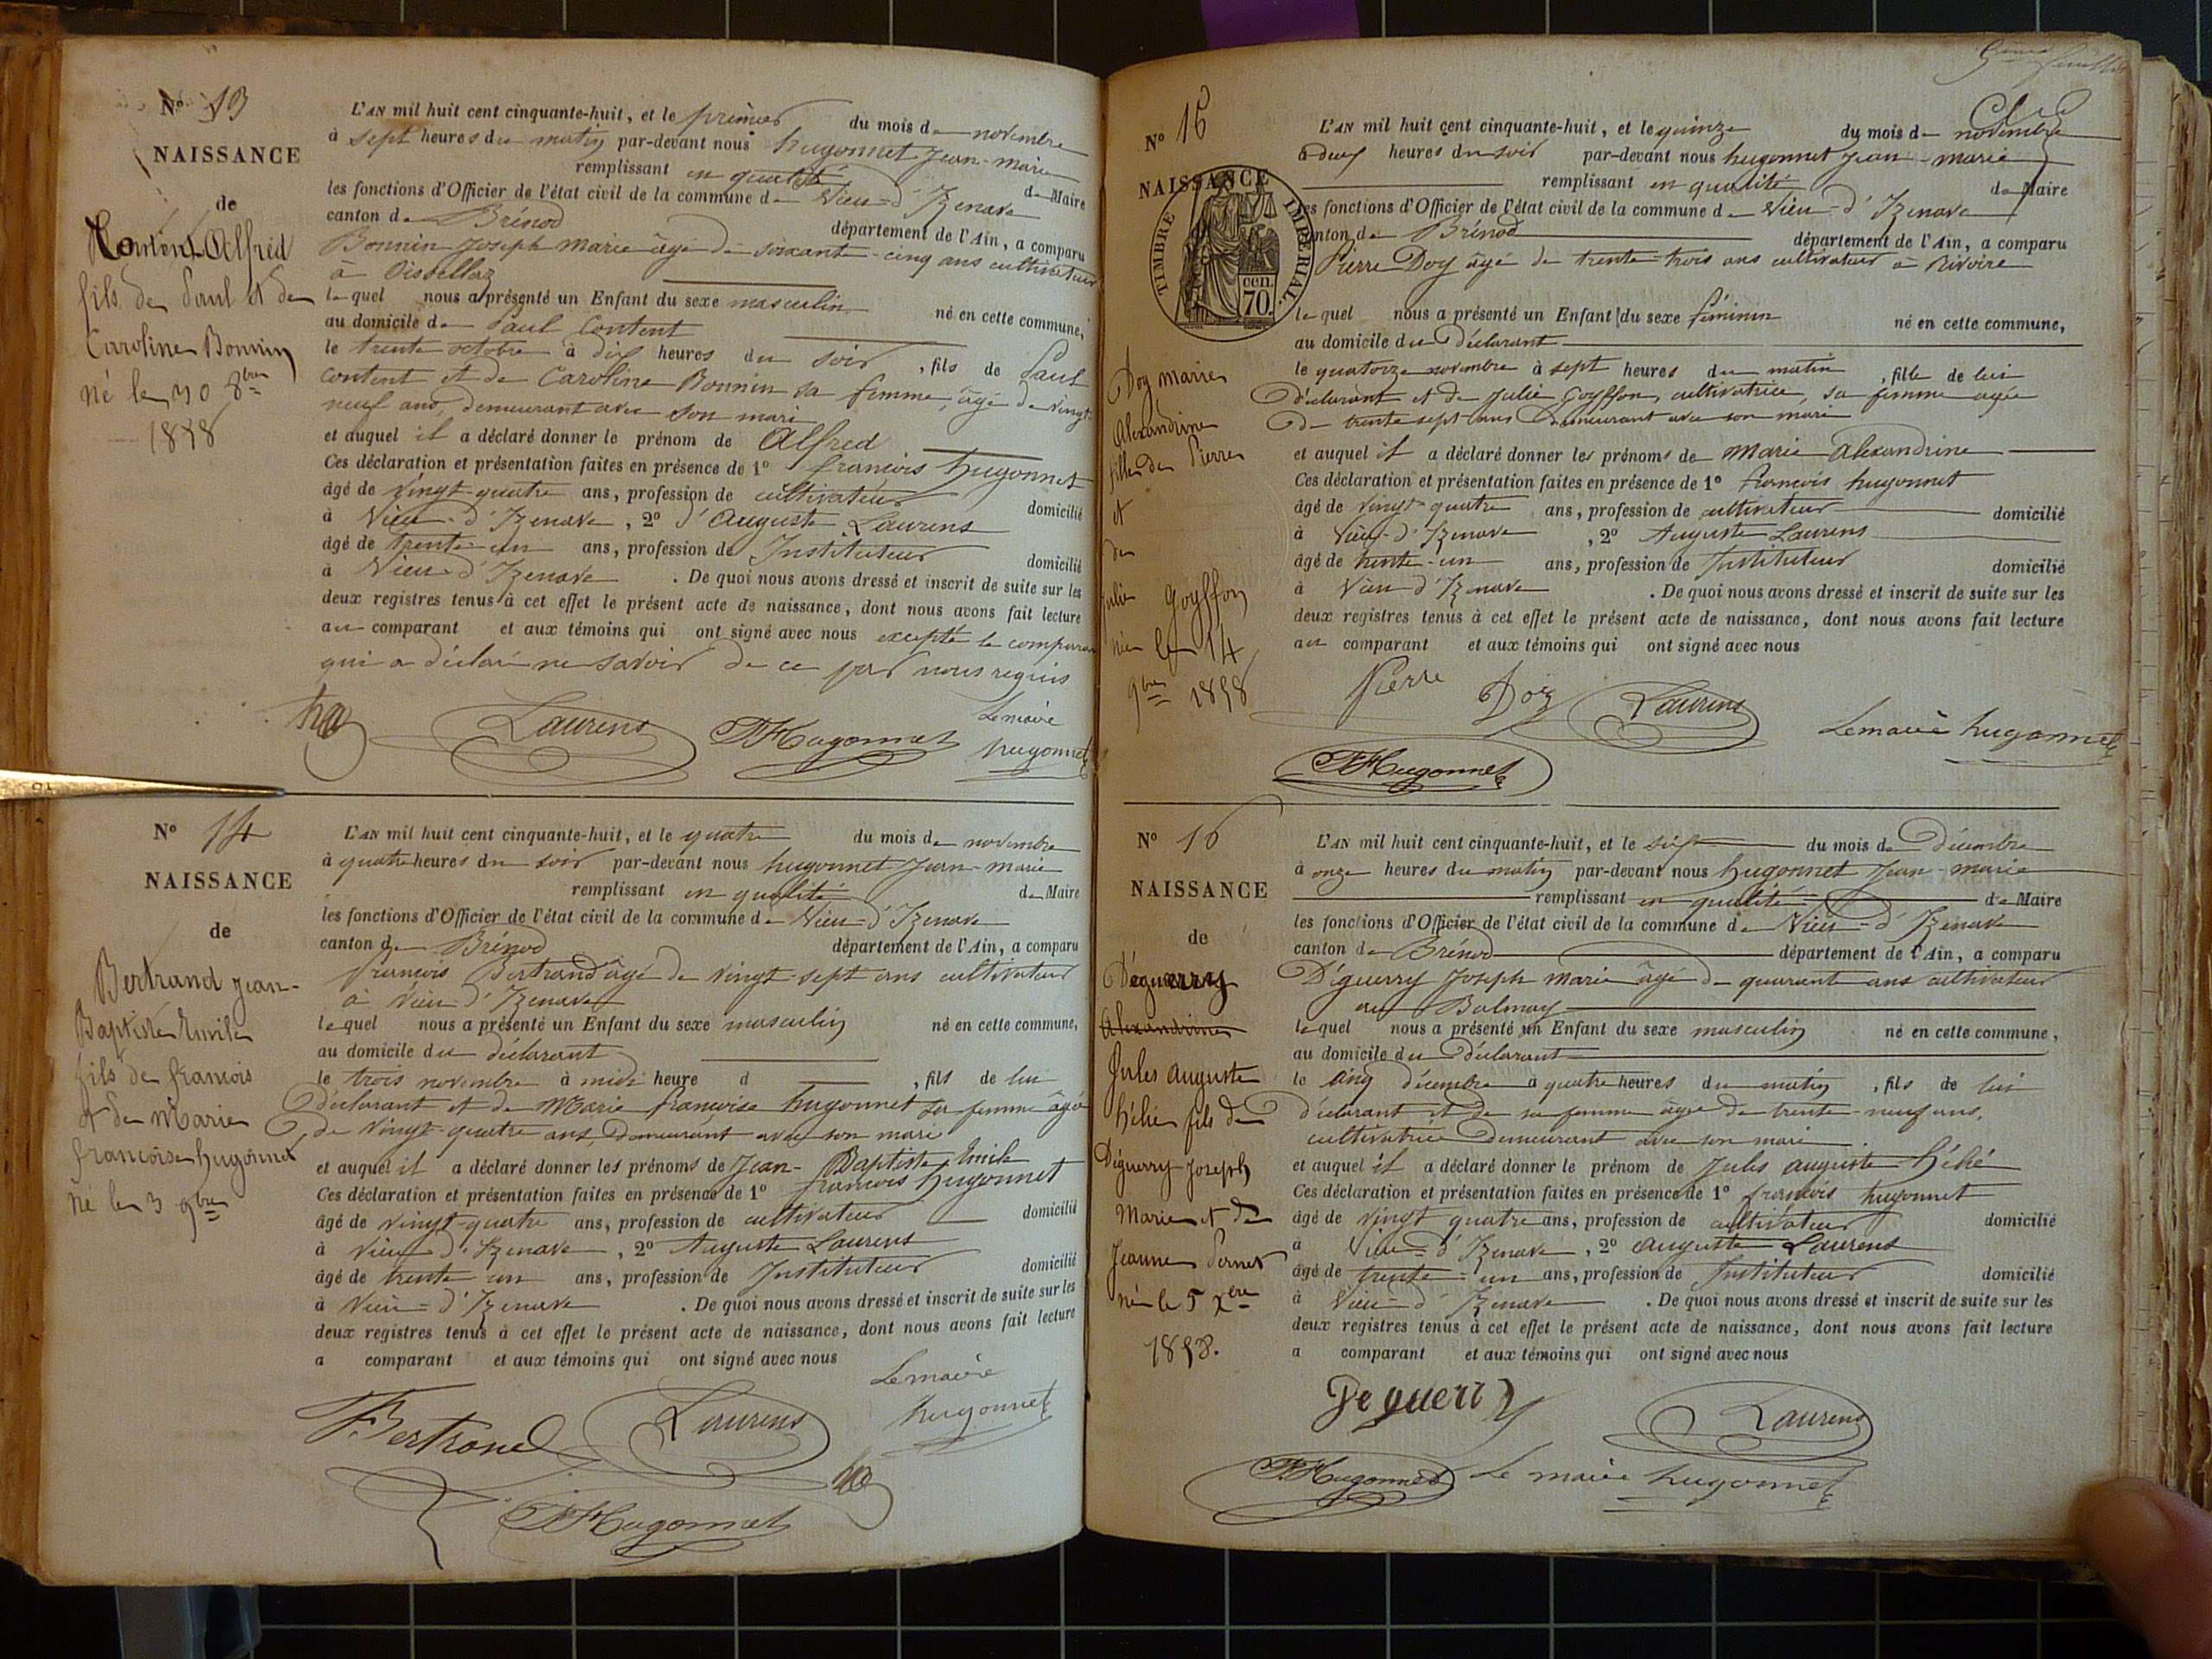 N° 13
NAISSANCE
de
Content Alfred
fils de Paul et de
Caroline Bonnin
né le 30 8bre
1858
L'AN mil huit cent cinquante-huit, et le premier du mois de novembre
à sept heures du matin par-devant nous hugonnet Jean-marie
remplissant en qualité de Maire
les fonctions d'Officier de l'état civil de la commune de Vieu-d'Izenave
canton de Brénod département de l'Ain, a comparu
Bonnin Joseph Marie âgé de soixante-cinq ans cultivateur
à Oisellaz
lequel nous a présenté un Enfant du sexe masculin né en cette commune,
au domicile de Paul Content
le trente octobre à dix heures du soir, fils de Paul
content et de Caroline Bonnin sa femme, âgé de vingt
neuf ans, demeurant avec son mari
et auquel il a déclaré donner le prénom de Alfred
Ces déclaration et présentation faites en présence de 1° françois hugonnet
âgé de vingt-quatre ans, profession de cultivateur domicilié
à Vieu-d'Izenave, 2° d'Auguste Laurens
âgé de trente-un ans, profession de Instituteur domicilié
à Vieu-d'Izenave. De quoi nous avons dressé et inscrit de suite sur les
deux registres tenus à cet effet le présent acte de naissance, dont nous avons fait lecture
au comparant et aux témoins qui ont signé avec nous excepté le comparant
qui a déclaré ne savoir de ce par nous requis
Laurens Hugonnet Lemaire
hugonnet
N° 14
NAISSANCE
de
Bertrand Jean-
Baptiste Emile
fils de françois
et de Marie
françoise hugonnet
né le 3 9bre
L'AN mil huit cent cinquante-huit, et le quatre du mois de novembre
à quatre heures du soir par-devant nous hugonnet Jean-marie
remplissant en qualité de Maire
les fonctions d'Officier de l'état civil de la commune de Vieu-d'Izenave
canton de Brénod département de l'Ain, a comparu
françois Bertrand âgé de vingt-sept ans cultivateur
à Vieu d'Izenave
lequel nous a présenté un Enfant du sexe masculin né en cette commune,
au domicile du déclarant
le trois novembre à midi heure d , fils de lui
déclarant et de Marie françoise hugonnet sa femme âgé
de vingt-quatre ans, demeurant avec son mari
et auquel il a déclaré donner les prénoms de Jean-Baptiste Emile
Ces déclaration et présentation faites en présence de 1° françois hugonnet
âgé de vingt-quatre ans, profession de cultivateur domicilié
à Vieu d'Izenave, 2° Auguste Laurens
âgé de trente un ans, profession de Instituteur domicilié
à Vieu-d'Izenave. De quoi nous avons dressé et inscrit de suite sur les
deux registres tenus à cet effet le présent acte de naissance, dont nous avons fait lecture
a comparant et aux témoins qui ont signé avec nous
Lemaire
Bertrand Laurens hugonnet
Hugonnet
N° 15
NAISSANCE
TIMBRE IMPERIAL.
cen.
70.
Doy marie
Alexandrine
fille de Pierre
et
de
Julie Goyffon
née le 14
9bre 1858
L'AN mil huit cent cinquante-huit, et le quinze du mois de novembre
à deux heures du soir par-devant nous hugonnet Jean-marie
remplissant en qualité de Maire
les fonctions d'Officier de l'état civil de la commune de Vieu-d'Izenave
canton de Brénod département de l'Ain, a comparu
Pierre Doy âgé de trente-trois ans cultivateur à Rivoire
lequel nous a présenté un Enfant du sexe féminin né en cette commune,
au domicile du Déclarant
le quatorze novembre à sept heures du matin, fille de lui
déclarant et de Julie Goyffon, cultivatrice, sa femme agée
de trente sept ans Demeurant avec son mari
et auquel il a déclaré donner les prénoms de Marie Alexandrine
Ces déclaration et présentation faites en présence de 1° françois hugonnet
âgé de vingt-quatre ans, profession de cultivateur domicilié
à Vieu-d'Izenave, 2° Auguste Laurens
âgé de trente-un ans, profession de Instituteur domicilié
à Vieu d'Izenave. De quoi nous avons dressé et inscrit de suite sur les
deux registres tenus à cet effet le présent acte de naissance, dont nous avons fait lecture
au comparant et aux témoins qui ont signé avec nous
Pierre Doy Laurens Lemaire hugonnet
Hugonnet
N° 16
NAISSANCE
de
Déguerry
Alexandrine
Jules auguste
hélié fils de
Déguerry Joseph
Marie et de
Jeanne Pernet
né le 5 Xbre
1858.
L'AN mil huit cent cinquante-huit, et le sept du mois de Décembre
à onze heures du matin par-devant nous hugonnet Jean-marie
remplissant en qualité de Maire
les fonctions d'Officier de l'état civil de la commune de Vieu-d'Izenave
canton de Brénod département de l'Ain, a comparu
Déguerry Joseph Marie âgé de quarante ans cultivateur
au Balmay
lequel nous a présenté un Enfant du sexe masculin né en cette commune,
au domicile du Déclarant
le cinq décembre à quatre heures du matin, fils de lui
déclarant et de sa femme âgée de trente-neuf ans,
cultivatrice Demeurant avec son mari
et auquel il a déclaré donner le prénom de Jules auguste hélié
Ces déclaration et présentation faites en présence de 1° françois hugonnet
âgé de vingt quatre ans, profession de cultivateur domicilié
à Vieu-d'Izenave, 2° auguste Laurens
âgé de trente-un ans, profession de Instituteur domicilié
à Vieu-d'Izenave. De quoi nous avons dressé et inscrit de suite sur les
deux registres tenus à cet effet le présent acte de naissance, dont nous avons fait lecture
a comparant et aux témoins qui ont signé avec nous
Deguerry Laurens
Hugonnet Le maire hugonnet